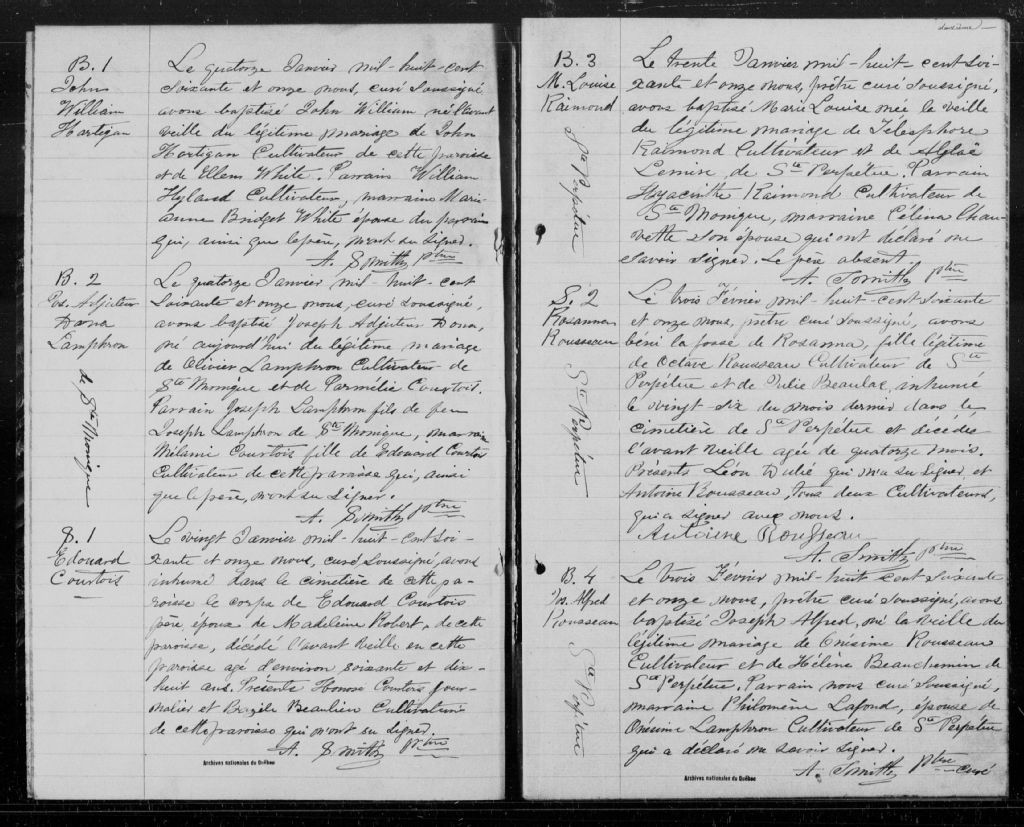 B. 1
John
William
Hartigan
Le quatorze Janvier mil-huit-cent
soixante et onze nous, curé soussigné
avons baptisé John William né l'avant
veille du légitime mariage de John
Hartigan Cultivateur de cette paroisse
et de Ellen White. Parrain William
Hyland Cultivateur, marraine Marie
Anne Bridget White épouse du parrain
qui, ainsi que le père, n'ont su signer.
A. Smith ptre
B. 2
Jos. Adjuteur
Dona
Lamphron
de Ste Monique
Le quatorze Janvier mil-huit-cent
soixante et onze nous, curé soussigné,
avons baptisé Joseph Adjuteur Dona,
né aujourd'hui du légitime mariage
de Olivier Lamphron Cultivateur de
Ste Monique et de Parmélie Courtois.
Parrain Joseph Lamphron fils de feu
Joseph Lamphron de Ste Monique, marraine
Mélanie Courtois fille de Edouard Courtois
Cultivateur de cette paroisse qui, ainsi
que le père, n'ont su signer.
A. Smith ptre
S. 1
Edouard
Courtois
Le vingt Janvier mil-huit-cent soi-
xante et onze nous, curé soussigné, avons
inhumé dans le cimetière de cette pa-
roisse le corps de Edouard Courtois
père époux de Madeleine Robert, de cette
paroisse, décédé l'avant veille en cette
paroisse agé d'environ soixante et dix-
huit ans. Présents Honoré Courtois jour-
nalier et Bazile Beaulieu Cultivateur
de cette paroisse qui n'ont su signer.
A. Smith ptre
Archives nationales du Québec
deuxième
B. 3
M. Louise
Raimond
Ste Perpétue
Le trente Janvier mil-huit cent soi-
xante et onze nous, prêtre curé soussigné,
avons baptisé Marie Louise née la veille
du légitime mariage de Télesphore
Raimond Cultivateur et de Aglaé
Lemire, de Ste Perpétue. Parrain
Hyacinthe Raimond Cultivateur de
Ste Monique, marraine Célina Chau-
vette son épouse qui ont déclaré ne
savoir signer. Le père absent.
A. Smith ptre
S. 2
Rosanna
Rousseau
Ste Perpétue
Le trois Février mil-huit-cent soixante
et onze nous, prêtre curé soussigné, avons
béni la fosse de Rosanna, fille légitime
de Octave Rousseau Cultivateur de Ste
Perpétue et de Julie Beaulac, inhumé
le vingt-six du mois dernier dans le
cimetière de Ste Perpétue et décédée
l'avant veille agée de quatorze mois.
Présents Léon Dulié qui n'a su signer et
Antoine Rousseau, tous deux Cultivateurs,
qui a signer avec nous.
Antoine Rousseau
A. Smith ptre
B. 4
Jos. Alfred
Rousseau
Ste Perpétue
Le trois Février mil-huit cent soixante
et onze nous, prêtre curé soussigné, avons
baptizé Joseph Alfred, né la veille du
légitime mariage de Onésime Rousseau
Cultivateur et de Hélène Beauchemin de
Ste Perpétue. Parrain nous curé soussigné,
marraine Philomène Lafond, épouse de
Onésime Lamphron Cultivateur de Ste Perpétue
qui a déclaré ne savoir signer.
A. Smith ptre curé
Archives nationales du Québec